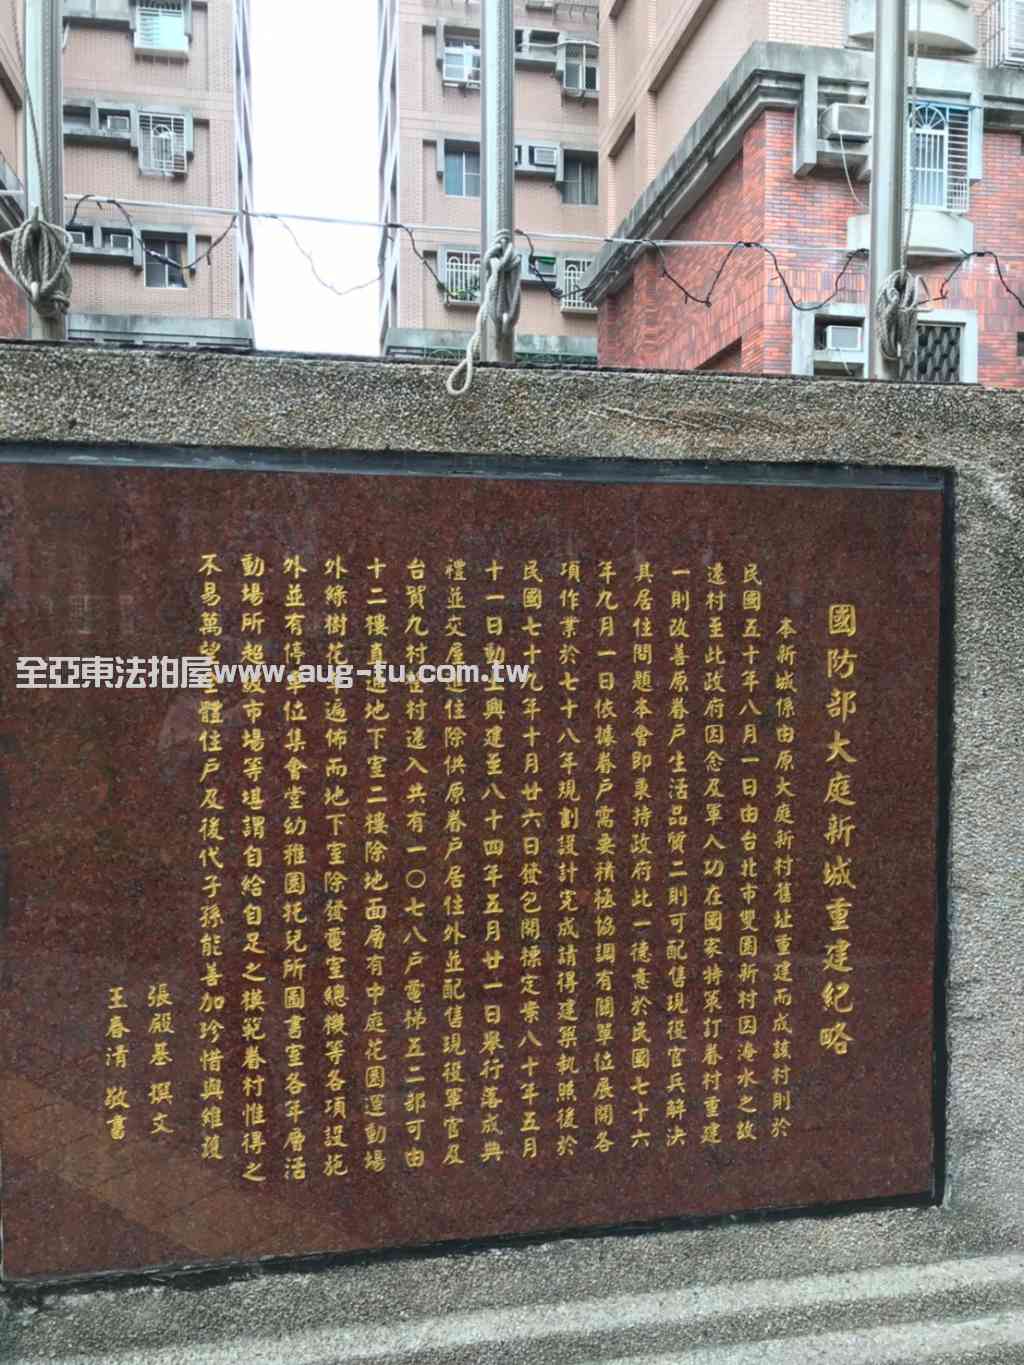 國防部大庭新城重建紀略
本新城係由原大庭新村舊址重建而成該村則於
民國五十年八月一日由台北市雙園新村因淹水之故
遷村至此政府因念及軍人功在國家特策訂眷村重建
一則改善原眷戶生活品質二則可配售現役官兵解決
其居住問題本會即秉持政府此一德意於民國七十六
年九月一日依據眷戶需要積極協調有關單位展開各
項作業於七十八年規劃設計完成請得建築執照後於
民國七十九年十月廿六日發包開標定案八十年五月
十一日動土興建至八十四年五月廿一日舉行落成典
禮並交屋進住除供原眷戶居住外並配售現役軍官及
台貿九村住村遷入共有一〇七八戶電梯五二部可由
十二樓直通地下室二樓除地面層有中庭花園運動場
外綠樹花草遍佈而地下室除發電室總機等各項設施
外並有停車位集會堂幼稚園托兒所圖書室各年層活
動場所超級市場等堪謂自給自足之模範眷村惟得之
不易萬望全體住戶及後代子孫能善加珍惜與維護
張殿基 撰文
王春清 敬書
全亞東法拍屋www.aug-tu.com.tw